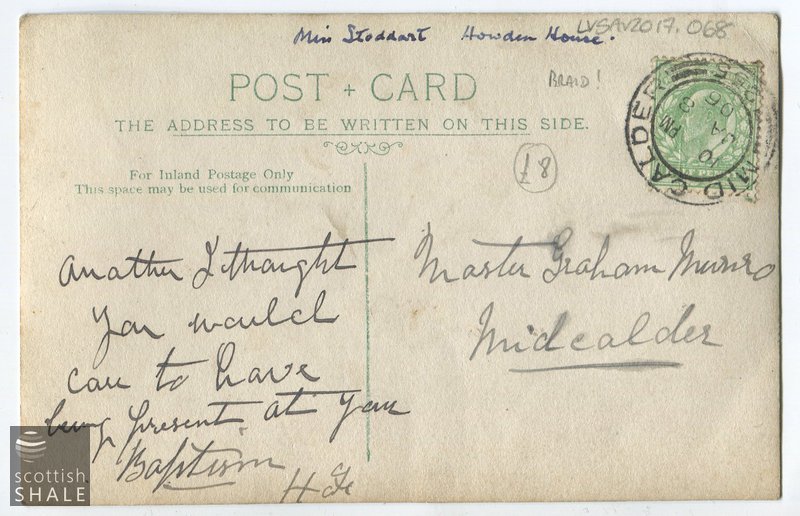 Miss Stoddart Howden House.
LVSAV2017.068
BRAID!
POST + CARD
THE ADDRESS TO BE WRITTEN ON THIS SIDE.
£8
For Inland Postage Only
This space may be used for communication
MID CALDER
8 PM
06
Another I thought
you would
care to have
being present at your
Baptism
Master Graham Munro
Midcalder
scottish
SHALE